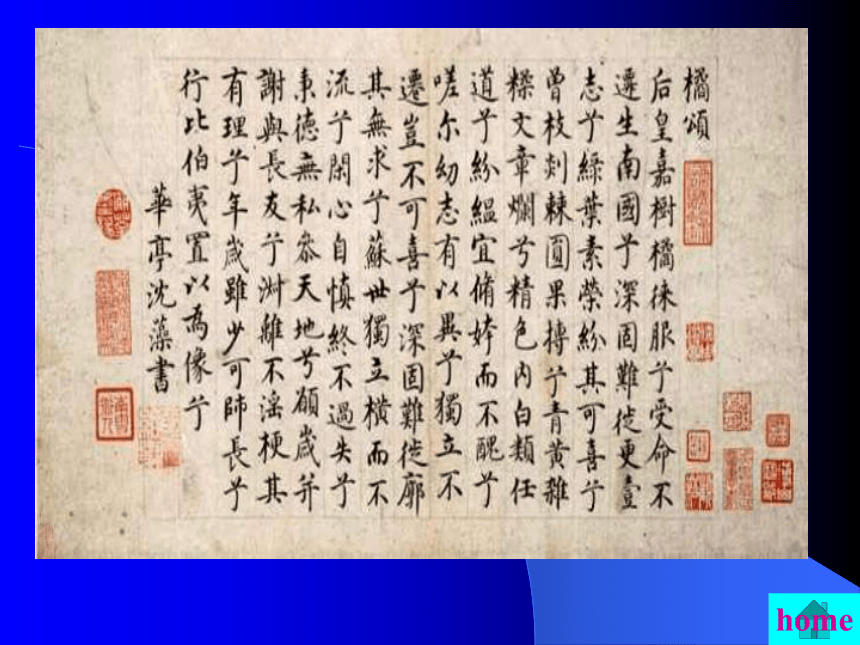 橘頌
后皇嘉樹橘徠服兮受命不
遷生南國兮深固難徙更壹
志兮綠葉素榮紛其可喜兮
曾枝剡棘圓果摶兮青黃雜
糅文章爛兮精色內白類任
道兮紛縕宜脩姱而不醜兮
嗟尔幼志有以異兮獨立不
遷豈不可喜兮深固難徙廓
其無求兮蘇世獨立橫而不
流兮閑心自慎終不過失兮
秉德無私叅天地兮願歲并
謝與長友兮淑離不淫梗其
有理兮年歲雖少可師長兮
行比伯夷置以為像兮
華亭沈藻書
home